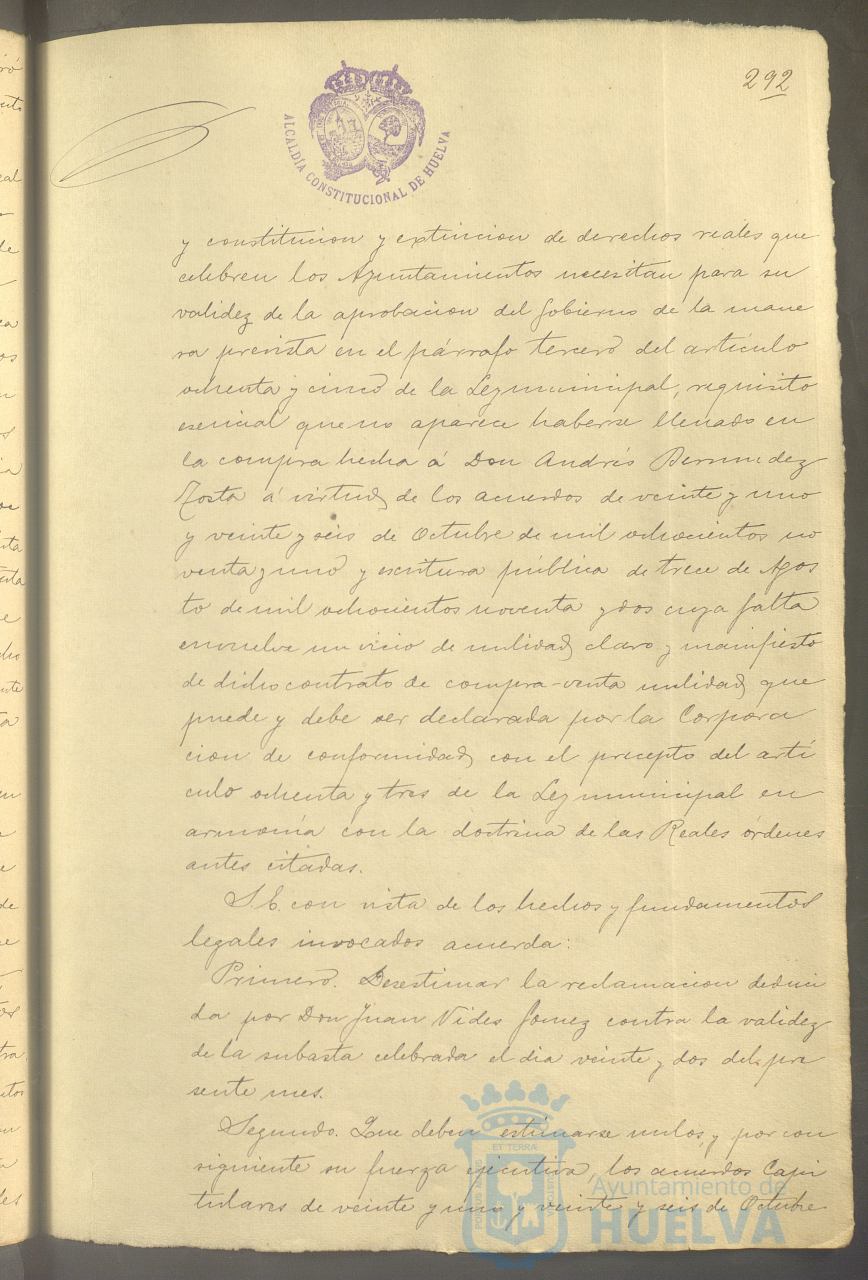 292
ALCALDÍA CONSTITUCIONAL DE HUELVA
y constitucion y extincion de derechos reales que
celebren los Ayuntamientos necesitan para su
validez de la aprobacion del Gobierno de la mane
ra prevista en el párrafo tercero del artículo
ochenta y cinco de la Ley municipal, requisito
esencial que no aparece haberse llenado en
la compra hecha á Don Andrés Bermudez
á virtud de los acuerdos de veinte y uno
y veinte y seis de Octubre de mil ochocientos no
venta y uno y escritura pública de trece de Agos
to de mil ochocientos noventa y dos cuya falta
envuelve un vicio de nulidad claro y manifiesto
de dicho contrato de compra-venta nulidad que
puede y debe ser declarada por la Corpora
cion de conformidad con el precepto del artí
culo ochenta y tres de la Ley municipal en
armonía con la doctrina de las Reales órdenes
antes citadas.
S. E. con vista de los hechos y fundamentos
legales invocados acuerda:
Primero. Desestimar la reclamacion deduci
da por Don Juan Vides Gomez contra la validez
de la subasta celebrada el dia veinte y dos del pre
sente mes.
Segundo. Que deben estimarse nulos y por con
siguiente su fuerza ejecutiva, los acuerdos Capi
tulares de veinte y uno y veinte y seis de Octubre
Ayuntamiento de
HUELVA